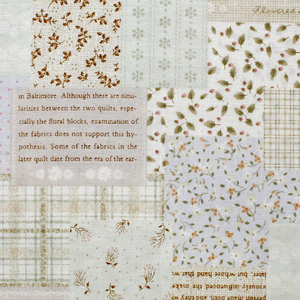 Flowered
in Baltimore. Although there are simi-
larities between the two quilts, espe-
cially the floral blocks, examination of
the fabrics does not support this hy-
pothesis. Some of the fabrics in the
later quilt date from the era of the ear-
later, but where hand that w
visually influenced the make
poison moth, and they w